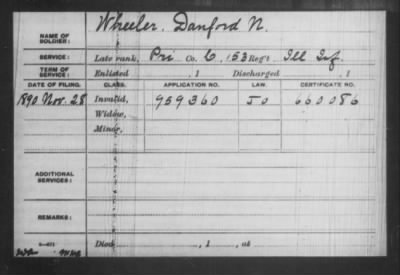 NAME OF SOLDIER: Wheeler, Danford N.
SERVICE: Late rank, Pri Co. C, 153 Reg't Ill Inf.
TERM OF SERVICE: Enlisted , 1 Discharged , 1
DATE OF FILING. CLASS. APPLICATION NO. LAW. CERTIFICATE NO.
1890 Nov. 28 Invalid, 959360 Jo 660086
Widow,
Minor,
ADDITIONAL SERVICES:
REMARKS:
Died , 1 , at